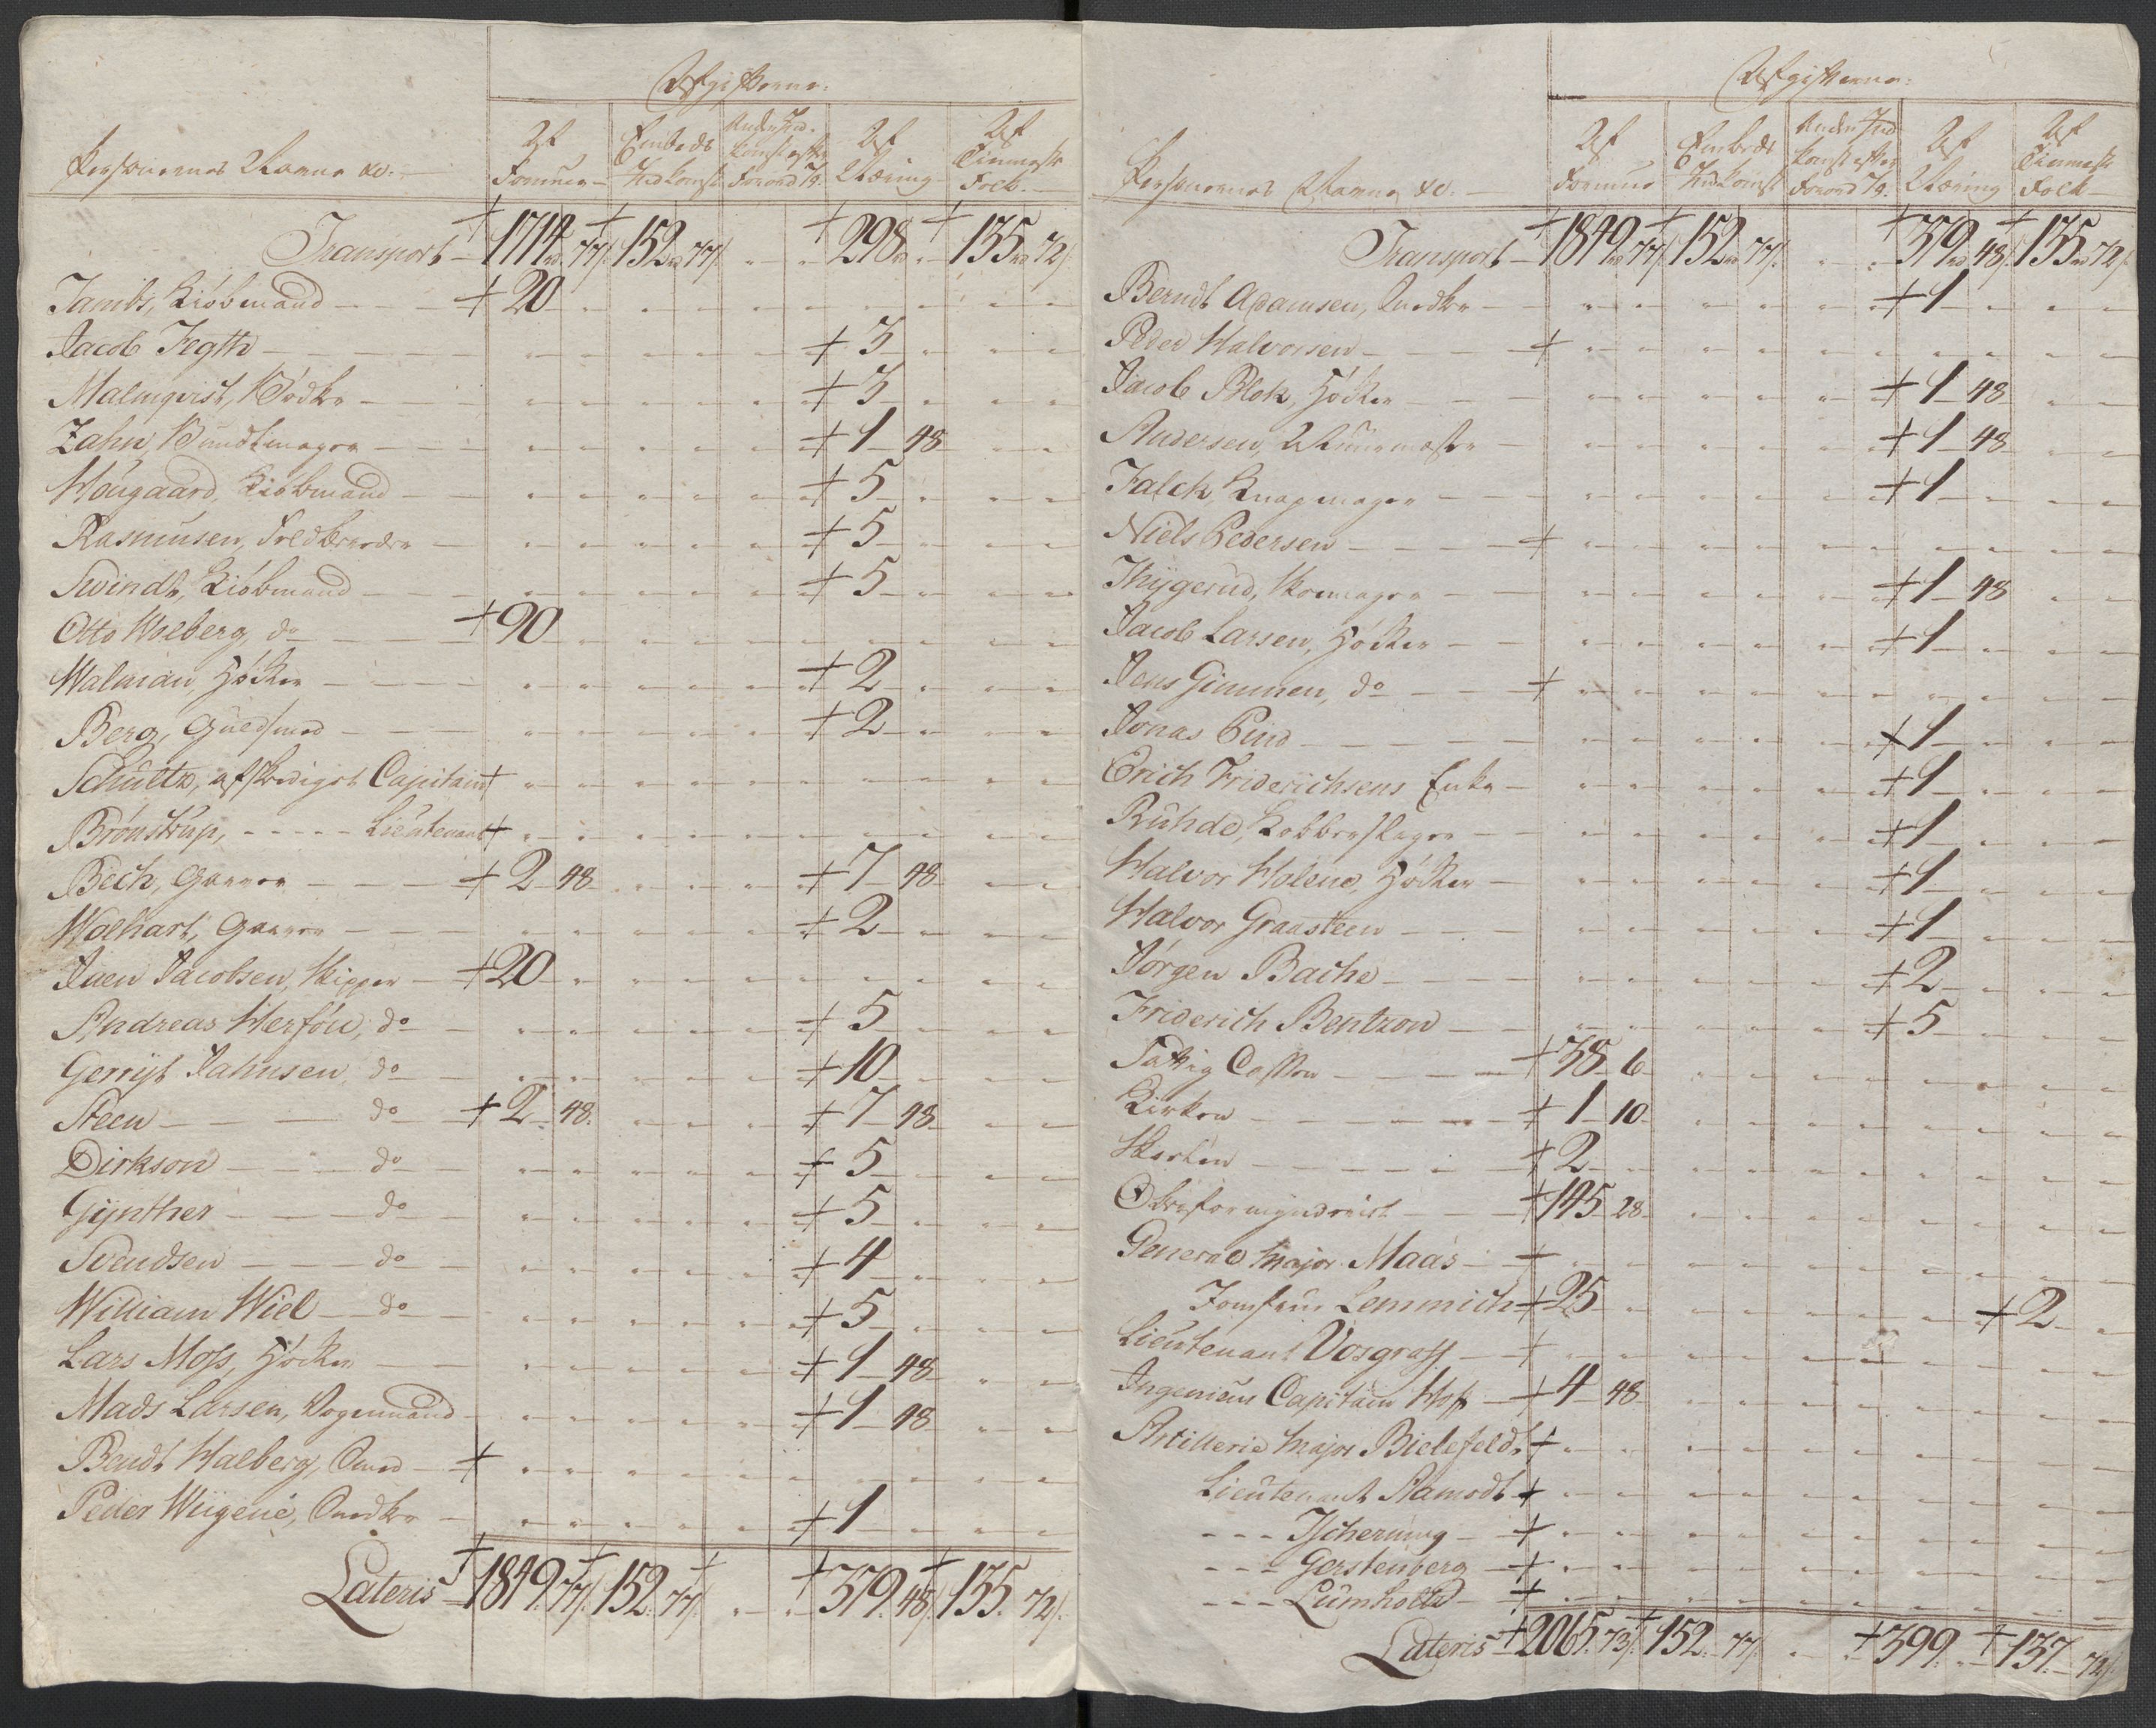 Afgifterne.
Personernes Navne &c.
Af Formue
Embeds Indkomst
Anden Indkomst efter Forord. 7 §.
Af Næring
Af Tienneste Folk
Transport + 1714 rd 77 s. + 152 rd 77 s. + 298 rd + 135 rd 72 s.
Tambs, Kiøbmand + 20
Jacob Fegth + 3
Malmqvist, Bødker + 3
Zahn, Bundtmager + 1 48
Hougaard, Kiøbmand + 5
Rasmusen, Feldbereder + 5
Swindt, Kiøbmand + 5
Otto Wolberg, do + 90
Walman, Høker + 2
Berg, Guldsmed + 2
Schultz, afskediget Capitain +
Brønstrup, - - - - - Lieutenant +
Bech, Garver + 2 48 + 7 48
Wolhart, Garver + 2
Juen Jacobsen, Skipper + 20
Andreas Herføu, do + 5
Gerrijt Jahnsen, do + 10
Steen do + 2 48 + 7 48
Dirkson do + 5
Gynther do + 5
Svendsen do + 4
William Wiel do + 5
Lars Moss, Høker + 1 48
Mads Larsen, Vognmand + 1 48
Bendt Halberg, Smed +
Peder Wiigene, Snedker + 1
Lateris + 1849 77 s. + 152 77 s. + + 379 48 s. + 135 72 s.
Afgifterne.
Personernes Navne &c.
Af Formue
Embeds Indkomst
Anden Indkomst efter Forord 7 §.
Af Næring
Af Tienneste Folk
Transport + 1849 rd 77 s. + 152 rd 77 s. + 379 rd 48 s. + 135 rd 72 s.
Berndt Adamsen, Snedker + 1
Peder Halvorsen +
Jacob Blok, Høker + 1 48
Andersen, Muurmester + 1 48
Falck, Knapmager + 1
Niels Pedersen +
Thygerud, Skomager + 1 48
Jacob Larsen, Høker + 1
Jens Gimmen, do +
Jonas Lind + 1
Erich Friderichsens Enke + 1
Ruhde, Kobberslager + 1
Halvor Holene, Høker + 1
Halvor Graasteen + 1
Jørgen Bache + 2
Friderich Bentzon + 5
Fattig Cassen + 38 6
Kirken + 1 10
Skolen + 2
Overformynderiet + 145 28
General Major Maas +
Jomfrue Lemmich + 25 + 2
Lieutenant Vosgraff +
Ingenieur Capitain Hoff + 4 48
Artillerie Major Bielefeldt +
Lieutenant Ramodt +
- - - Tscherning +
- - - Gerstenberg +
- - - Lumholtz +
Lateris + 2065 73 s. + 152 77 s. + 399 + 137 72 s.